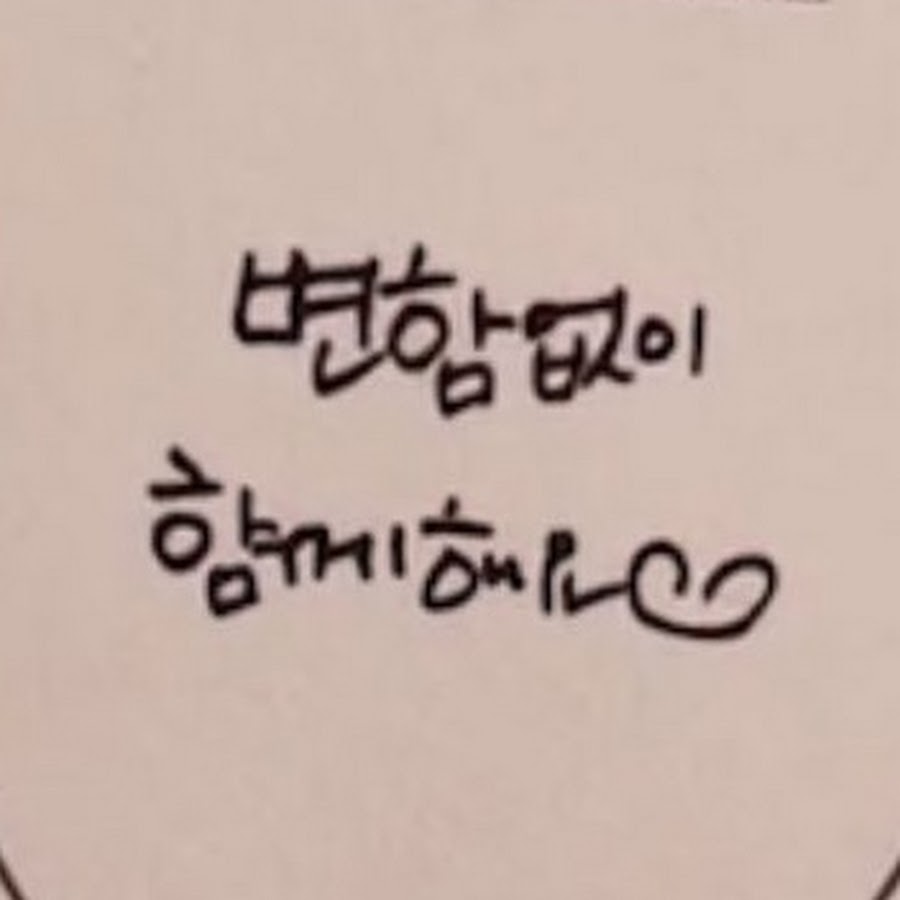 변함없이
함께해요♡